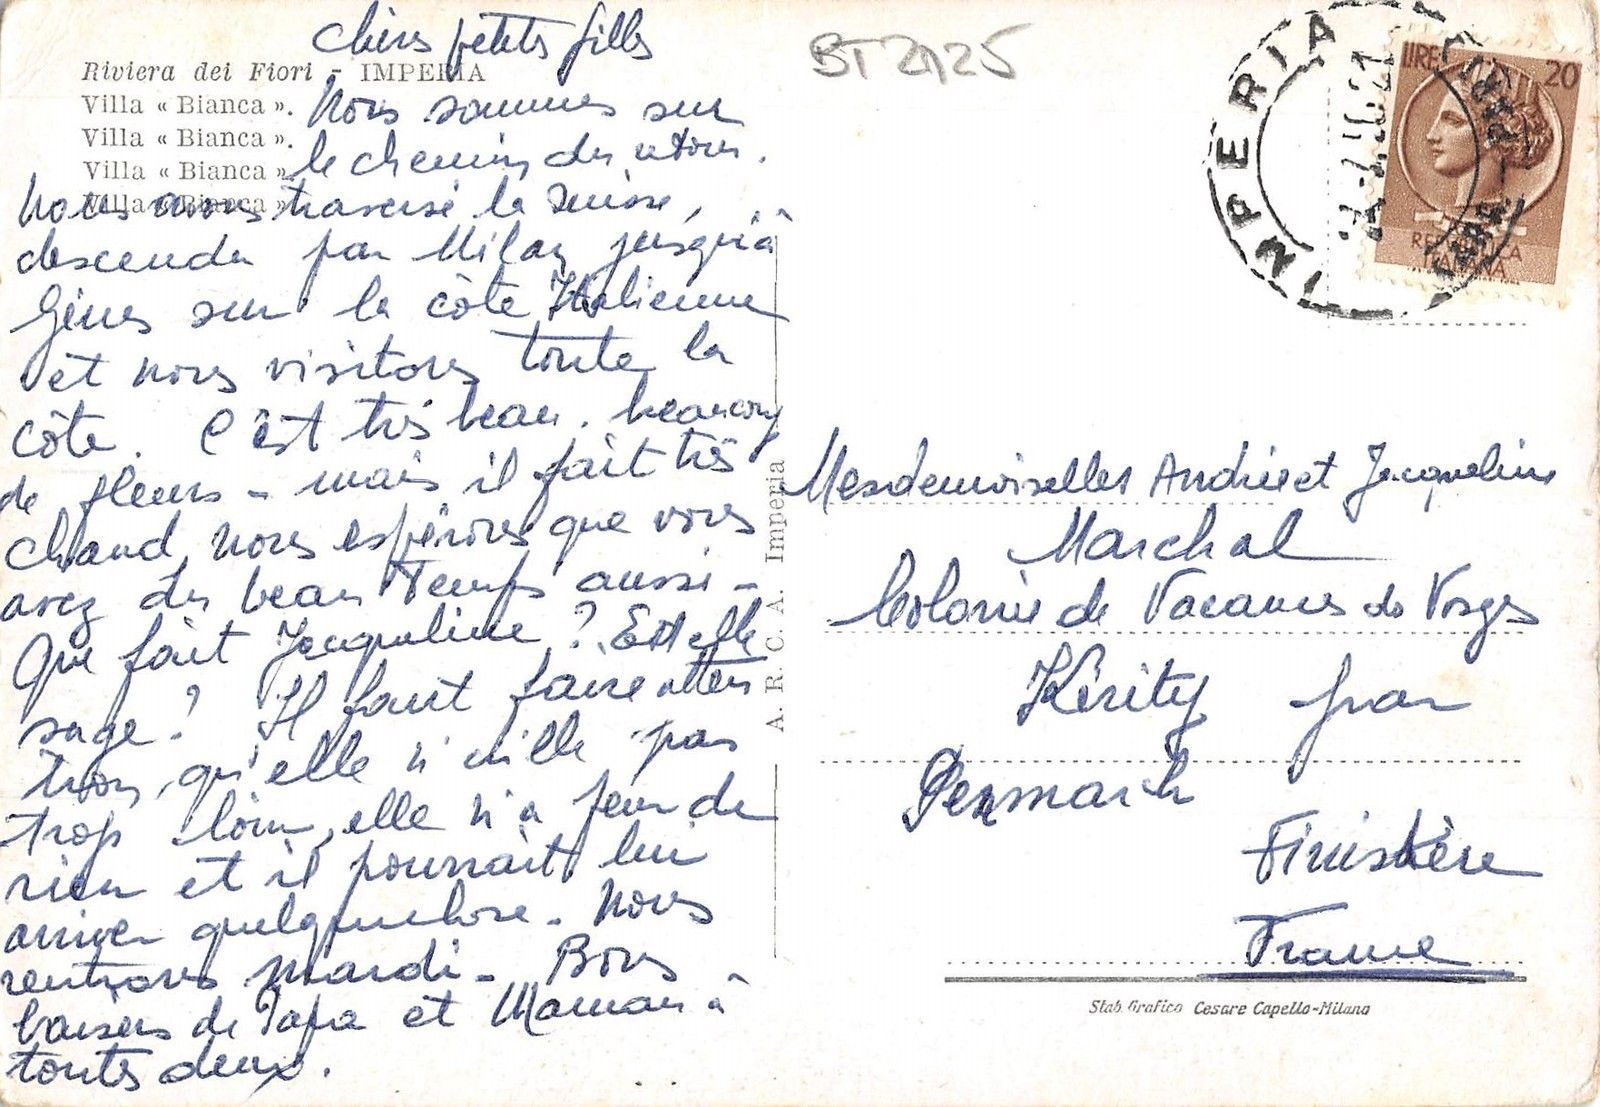 Riviera dei Fiori - IMPERIA
Villa « Bianca ».
Villa « Bianca ».
Villa « Bianca »
Villa « Bianca »
Chères petites filles
Nous sommes sur
le chemin du retour.
Nous avons traversé la Suisse,
descendu par Milan jusqu'à
Gênes sur la côte Italienne
et nous visitons toute la
côte. C'est très beau. beaucoup
de fleurs - mais il fait très
chaud, nous espérons que vous
avez du beau temps aussi -
Que fait Jacqueline ? Est elle
sage ? Il faut faire atten
tion, qu'elle n'aille pas
trop loin, elle n'a peur de
rien et il pourrait lui
arriver quelque chose. Nous
rentrons mardi - Bons
baisers de Papa et Maman à
toutes deux.
BT 2125
IMPERIA
LIRE 20
REPUBBLICA
ITALIANA
A. R. C. A. Imperia
Mesdemoiselles Andrée et Jacqueline
Marchal
Colonie de Vacances des Vosges
Kérity par
Penmarch
Finistère
France
Stab. Grafico Cesare Capello-Milano